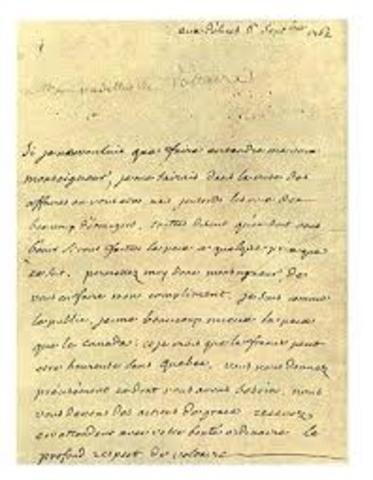 aux Délices 6e Septembre 1762
Voltaire
Si je ne voulais que faire entendre ma voix
monseigneur, je me tairais dans la crise des
affaires ou vous etes. mais j'entends les voix de
beaucoup d'étrangers, touttes disent qu'on doit vous
bénir si vous faittes la paix a quelque prix que
ce soit. permettez moy donc monseigneur de
vous en faire mon compliment. je suis comme
le public, j'aime beaucoup mieux la paix
que le canada: et je crois que la france peut
etre heureuse sans Quebec. vous nous donnez
précisément ce dont nous avons besoin. nous
vous devons des actions de grace. recevez
en attendant avec votre bonté ordinaire le
profond respect de voltaire